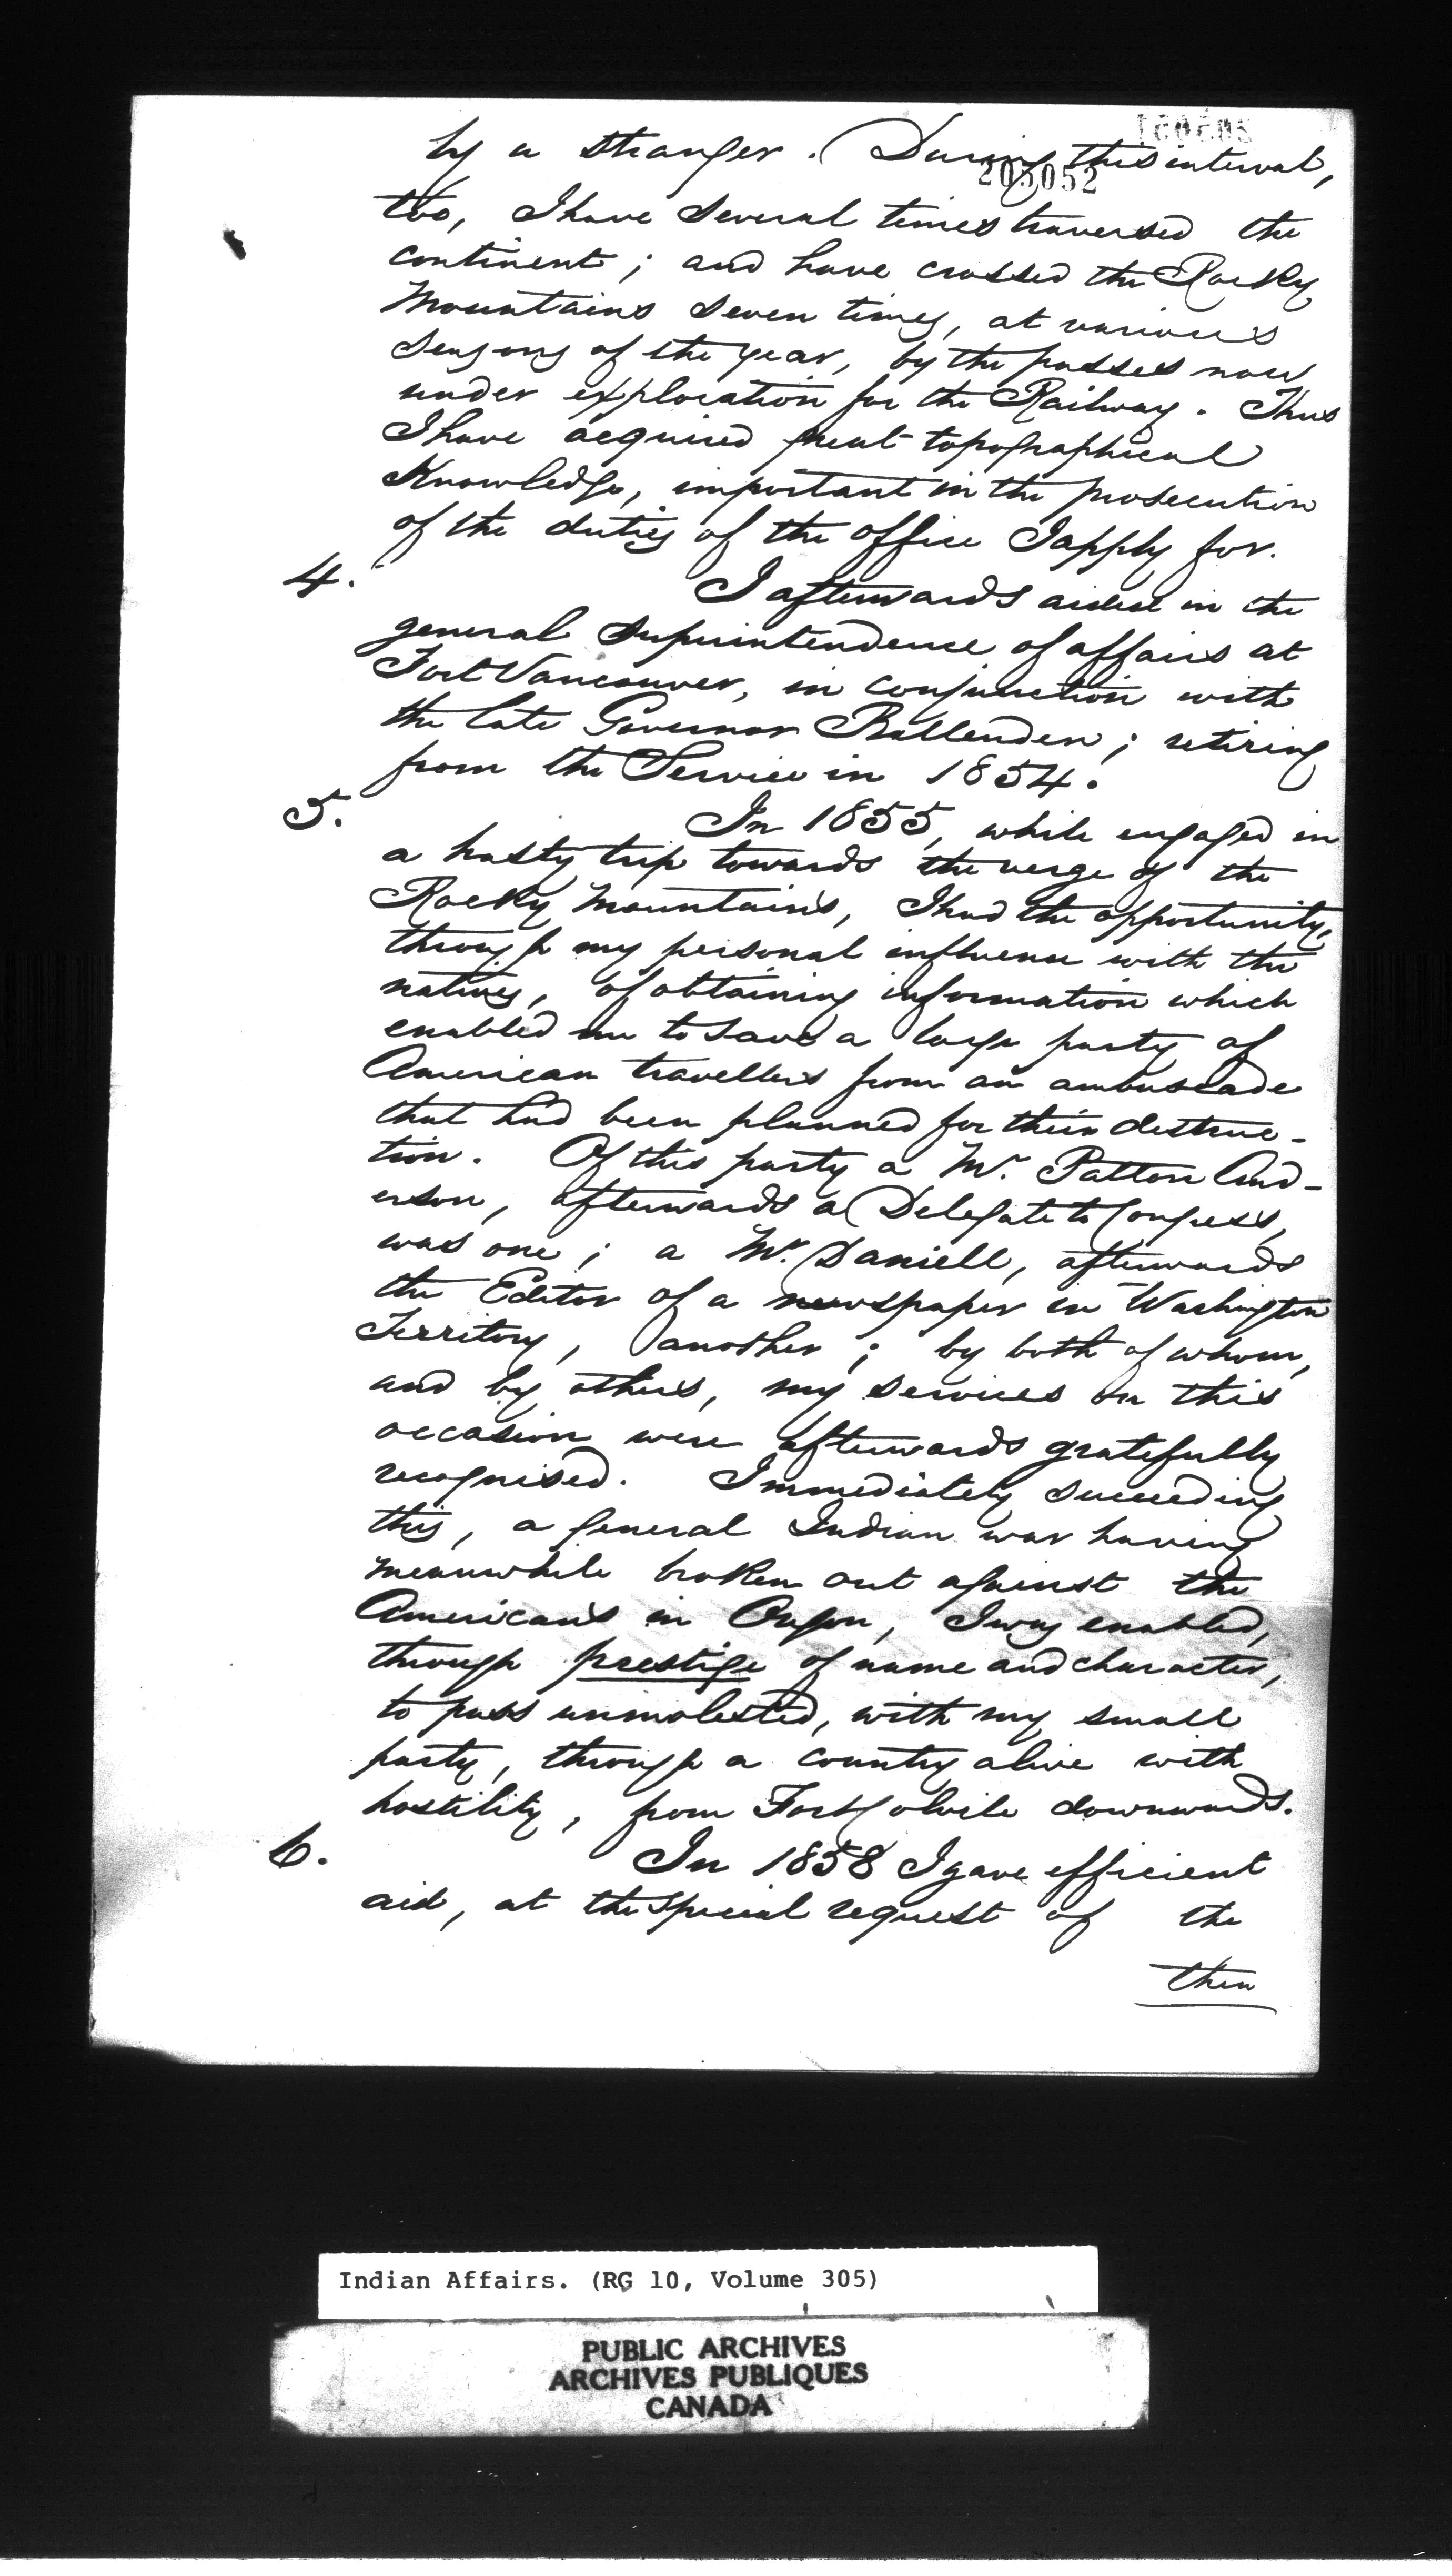 205051
by a stranger. During this interval,
205052
too, I have several times traversed the
continent; and have crossed the Rocky
Mountains seven times, at various
seasons of the year, by the passes now
under exploration for the Railway. Thus
I have acquired great topographical
Knowledge, important in the prosecution
of the duties of the office I apply for.
4. I afterwards aided in the
general superintendence of affairs at
Fort Vancouver, in conjunction with
the late Governor Ballenden; retiring
from the Service in 1854.
5. In 1855, while engaged in
a hasty trip towards the verge of the
Rocky Mountains, I had the opportunity,
through my personal influence with the
natives, of obtaining information which
enabled me to save a large party of
American travellers from an ambuscade
that had been planned for their destruc-
tion. Of this party a Mr. Patton And-
erson, afterwards a Delegate to Congress,
was one; a Mr. Daniell, afterwards
the Editor of a newspaper in Washington
Territory, another; by both of whom,
and by others, my services on this
occasion were afterwards gratefully
recognised. Immediately succeeding
this, a general Indian war having
meanwhile broken out against the
Americans in Oregon, I was enabled,
through prestige of name and character,
to pass unmolested, with my small
party, through a country alive with
hostility, from Fort Colvile downwards.
6. In 1858 I gave efficient
aid, at the special request of the
then
Indian Affairs. (RG 10, Volume 305)
PUBLIC ARCHIVES
ARCHIVES PUBLIQUES
CANADA